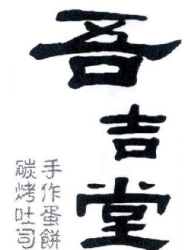 吾吉堂
手作蛋餅
碳烤吐司